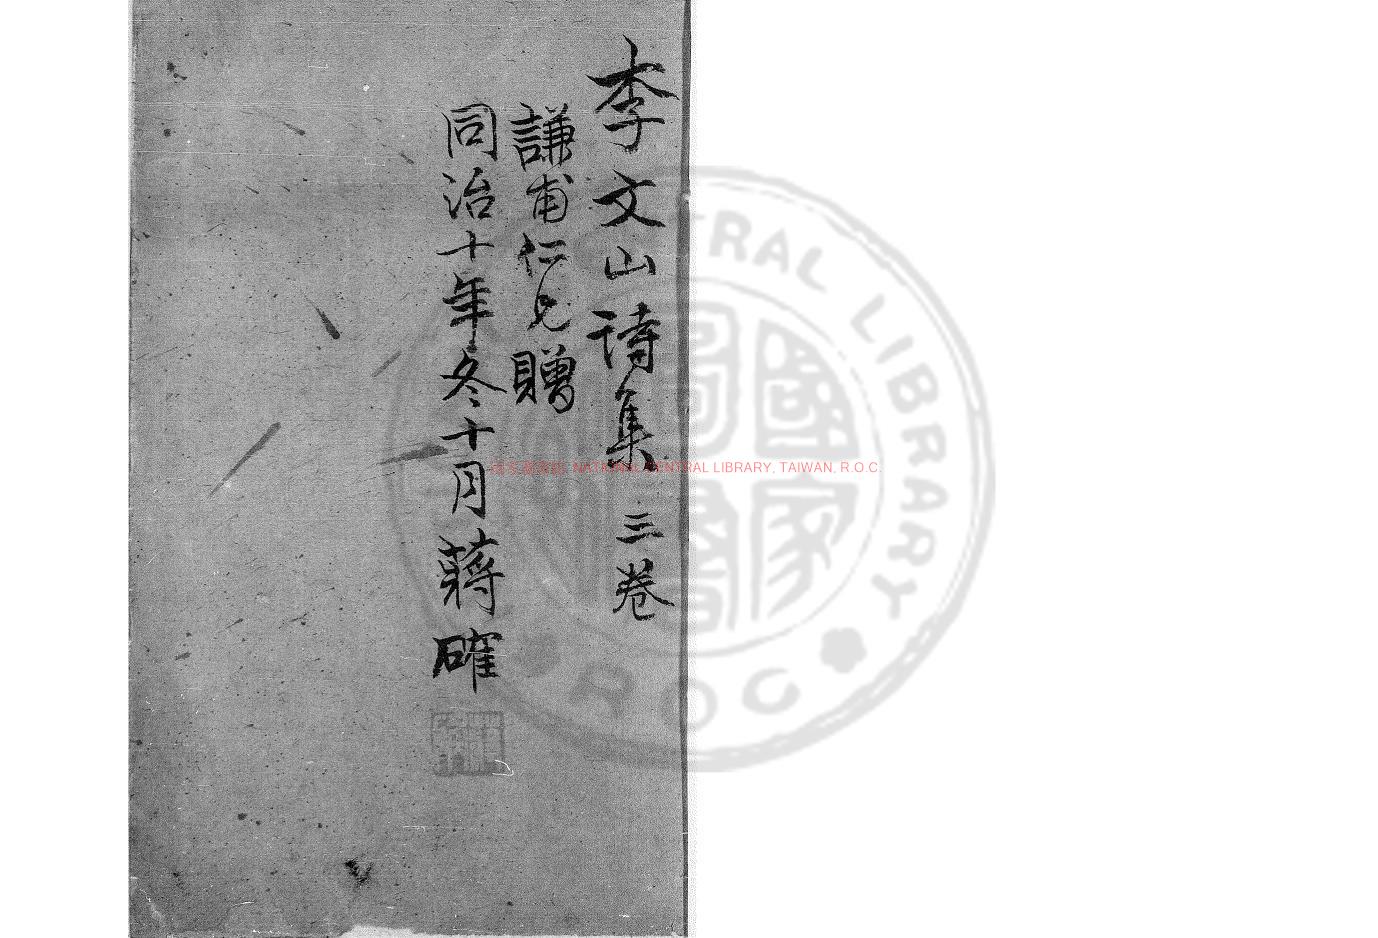 李文山詩集 三卷
謙甫仁兄贈
同治十年冬十月蔣確
NATIONAL CENTRAL LIBRARY, TAIWAN, R.O.C.
CENTRAL LIBRARY
ROC
國家圖書館